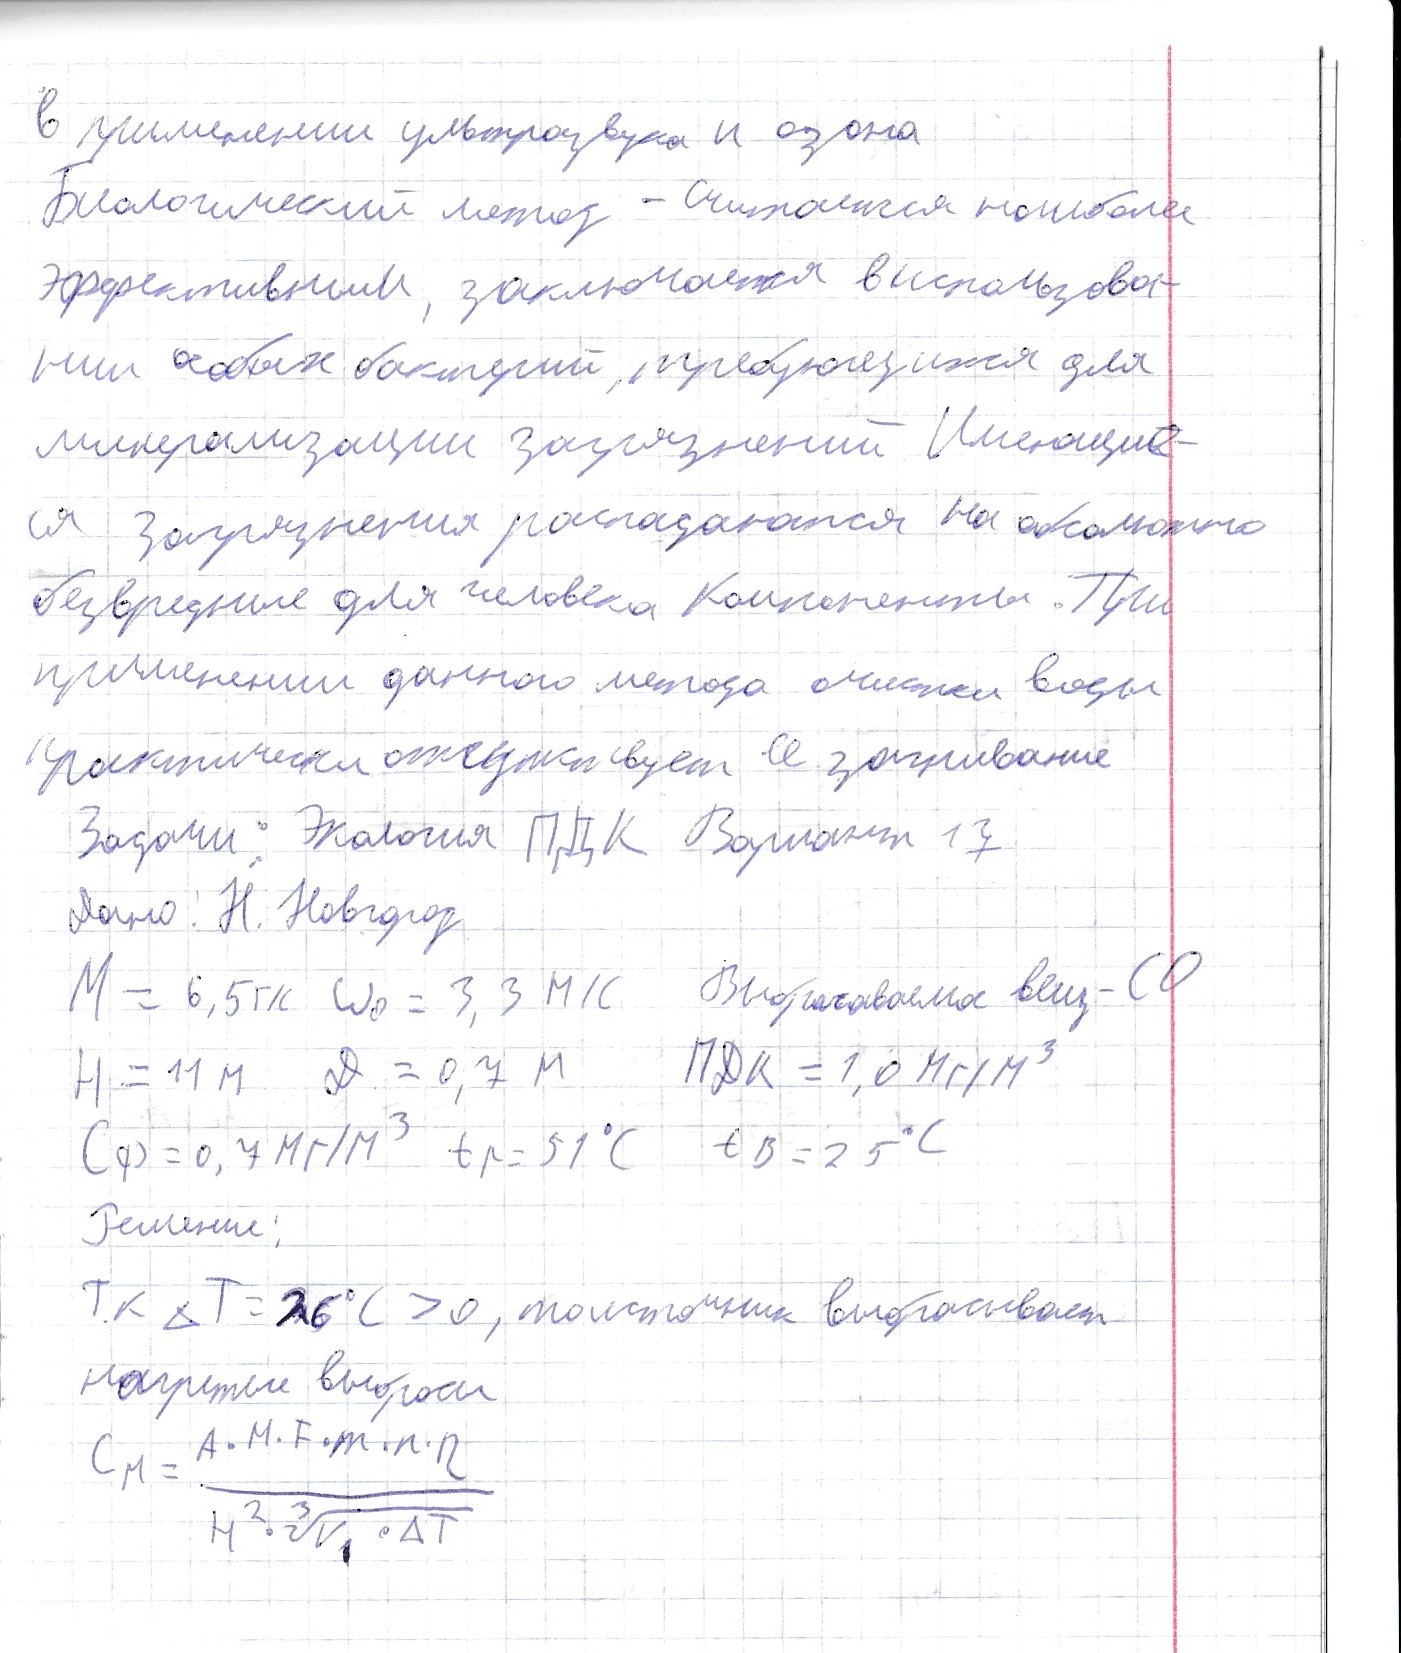 в применении ультрозвука и озона
Биологический метод - Считается наиболее
эффективным, заключается в использова-
нии особых бактерий, требующихся для
минерализации загрязнений Имеющие-
ся загрязнения распадаются на абсолютно
безвредные для человека компоненты. При
применении данного метода очистки воды
практически отсутствует её загнивание
Задачи: Экология ПДК Вариант 17
Дано: Н. Новгород
M = 6,5 гк ω₀ = 3,3 м/с Выбрасываемое вещ-СО
H = 11 м D = 0,7 м ПДК = 1,0 мг/м³
Cф = 0,7 мг/м³ tг = 51°C tв = 25°C
Решение:
Т.к ΔT = 26°C > 0, то источник выбрасывает
нагретые выбросы
Cм = (A·M·F·m·n·η) / (H²·∛(V₁·ΔT))